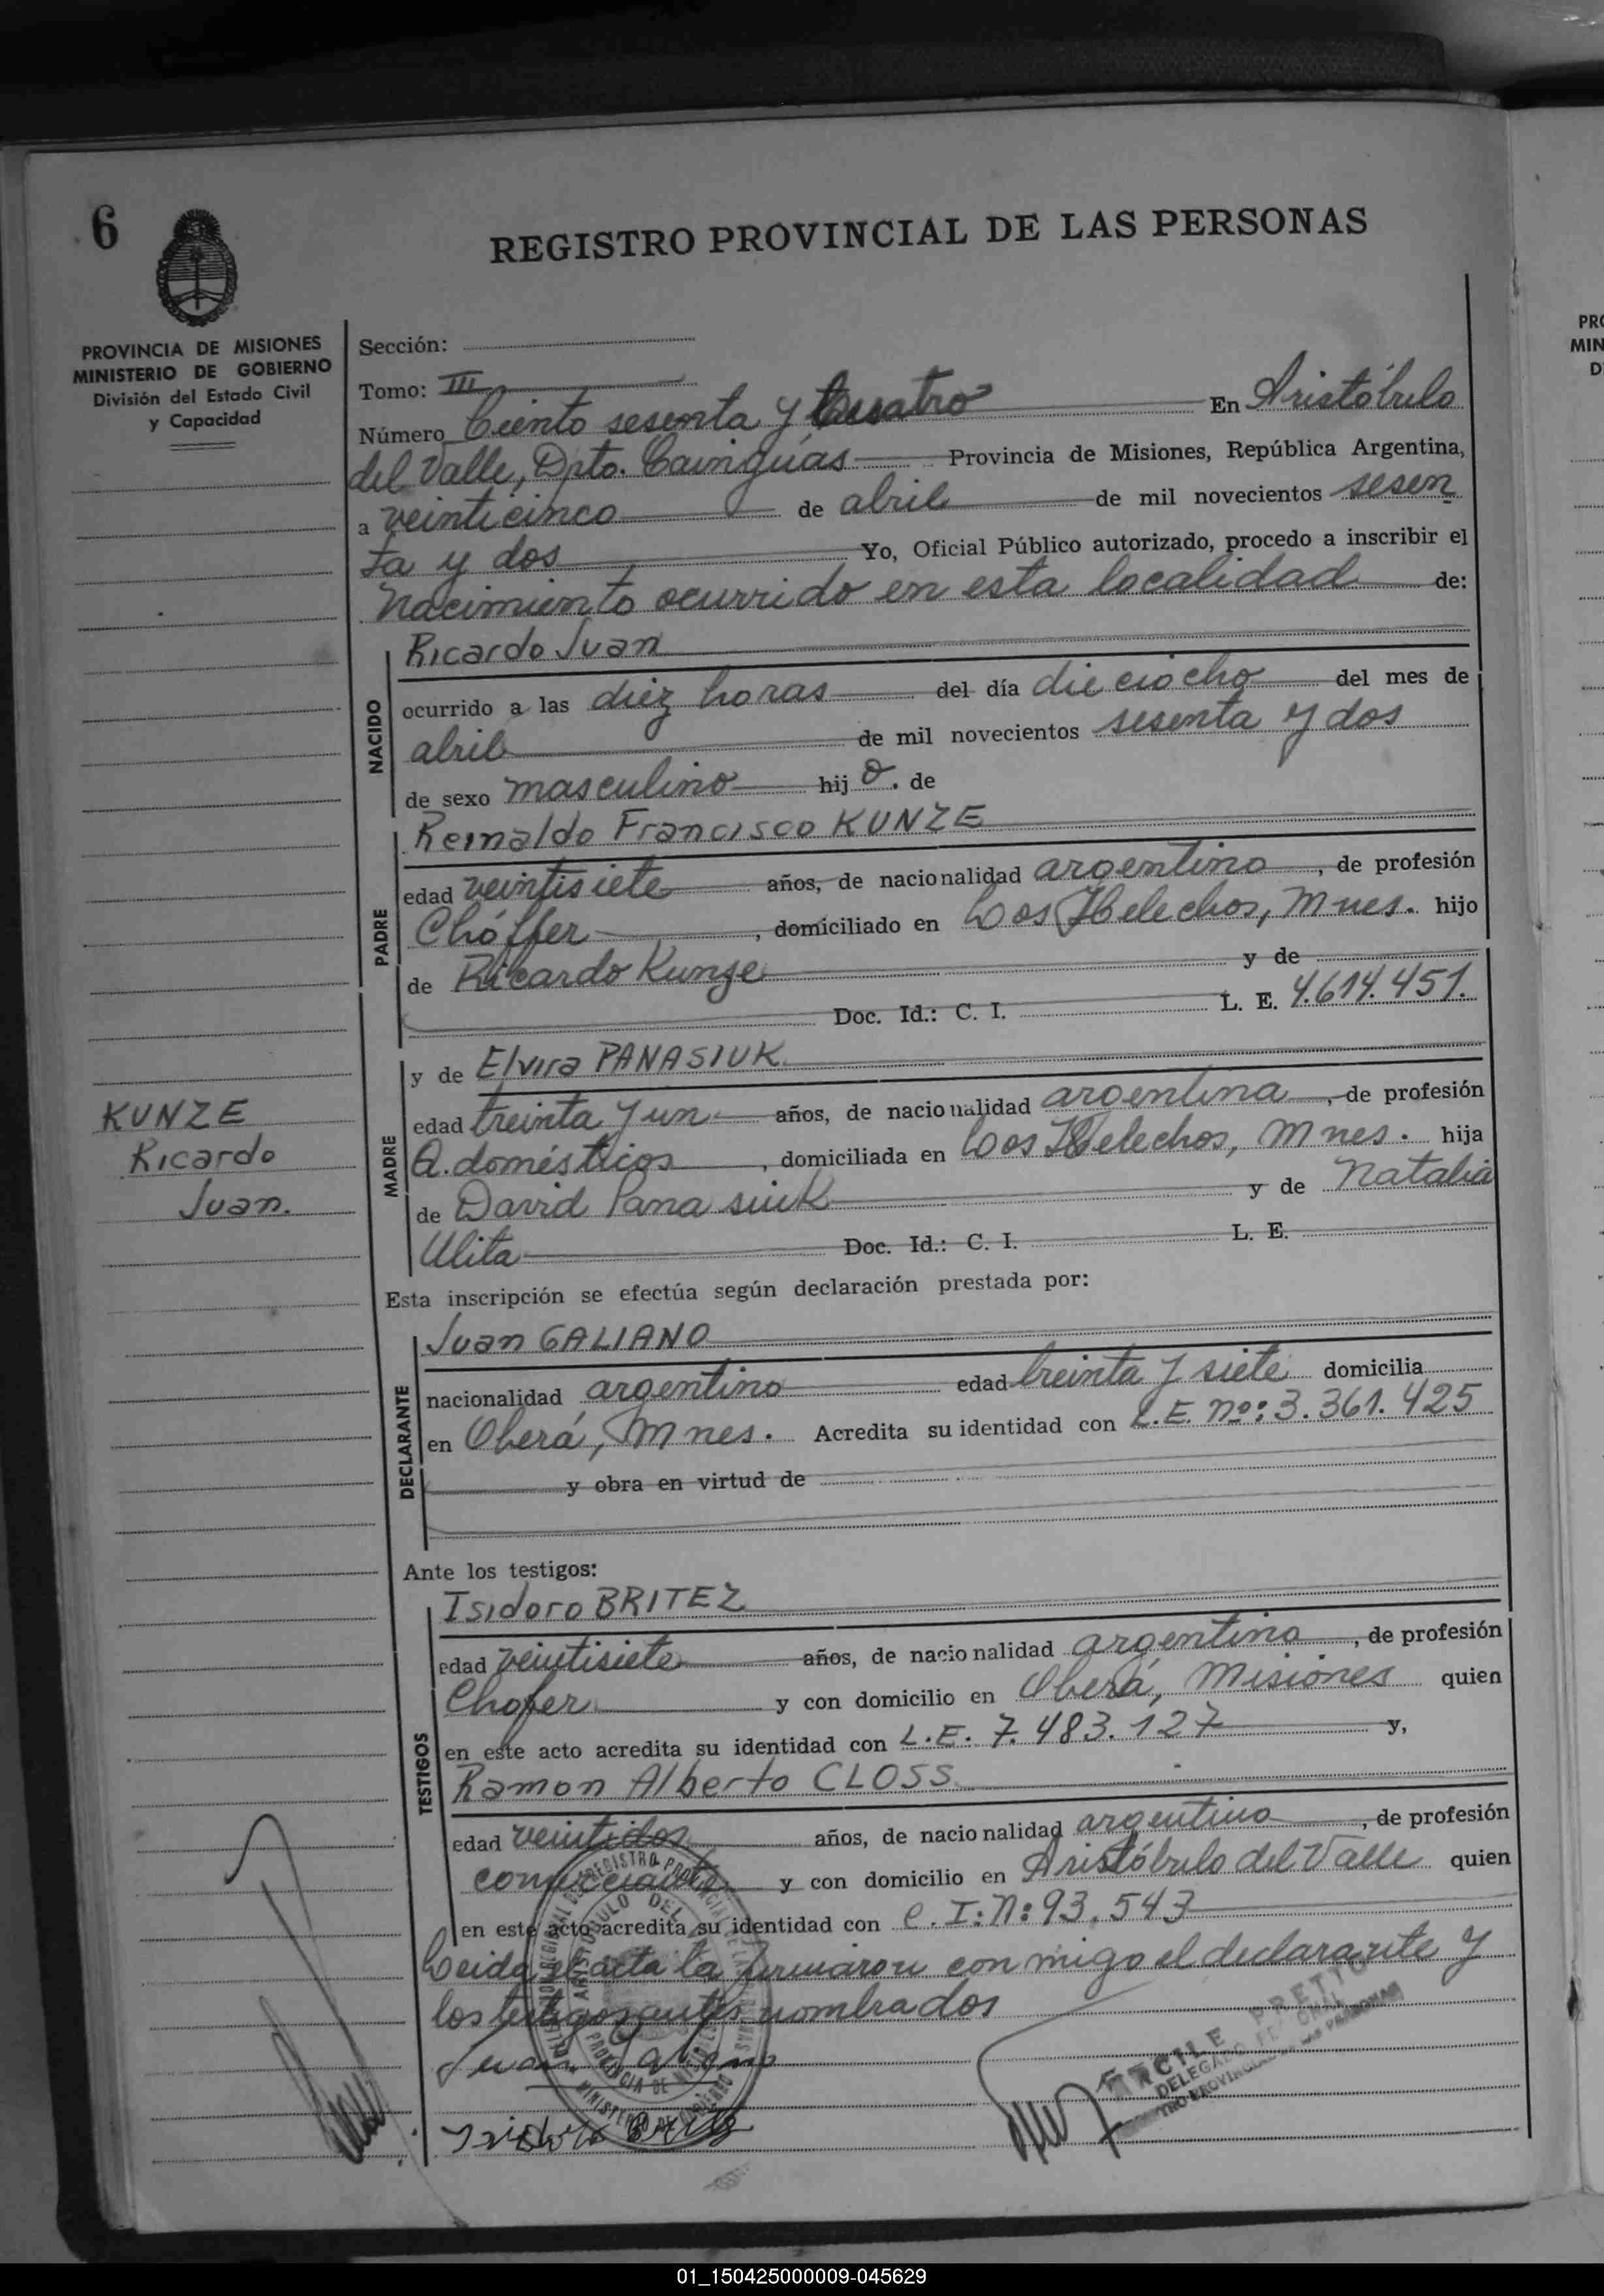 6
REGISTRO PROVINCIAL DE LAS PERSONAS
PROVINCIA DE MISIONES
MINISTERIO DE GOBIERNO
División del Estado Civil
y Capacidad
Sección:
Tomo: III
Número Ciento sesenta y cuatro En Aristóbulo
del Valle, Dpto. Cainguas Provincia de Misiones, República Argentina,
a veinticinco de abril de mil novecientos sesen
ta y dos Yo, Oficial Público autorizado, procedo a inscribir el
nacimiento ocurrido en esta localidad de:
NACIDO
Ricardo Juan
ocurrido a las diez horas del día dieciocho del mes de
abril de mil novecientos sesenta y dos
de sexo masculino hij o. de
PADRE
Reinaldo Francisco KUNZE
edad veintisiete años, de nacionalidad argentino, de profesión
Chóffer, domiciliado en Los Helechos, Mnes. hijo
de Ricardo Kunze y de
Doc. Id.: C. I. L. E. 4.614.451.
MADRE
y de Elvira PANASIUK
edad treinta y un años, de nacionalidad argentina, de profesión
Q. domésticos, domiciliada en Los Helechos, Mnes. hija
de David Panasiuk y de Natalia
Ulita Doc. Id.: C. I. L. E.
KUNZE
Ricardo
Juan.
Esta inscripción se efectúa según declaración prestada por:
DECLARANTE
Juan GALIANO
nacionalidad argentino edad treinta y siete domicilia
en Oberá, Mnes. Acredita su identidad con L.E. nº: 3.361.425
y obra en virtud de
Ante los testigos:
TESTIGOS
Isidoro BRITEZ
edad veintisiete años, de nacionalidad argentino, de profesión
Chofer y con domicilio en Oberá, Misiones quien
en este acto acredita su identidad con L.E. 7.483.127 y,
Ramon Alberto CLOSS
edad veintidos años, de nacionalidad argentino, de profesión
comerciante y con domicilio en Aristóbulo del Valle quien
en este acto acredita su identidad con C.I: N: 93.543
Leida el acta la firmaron conmigo el declarante y
los testigos antes nombrados
Juan Galiano
Isidoro Britez
PRETTO
DELEGADO
PRO
MIN
D
01_150425000009-045629